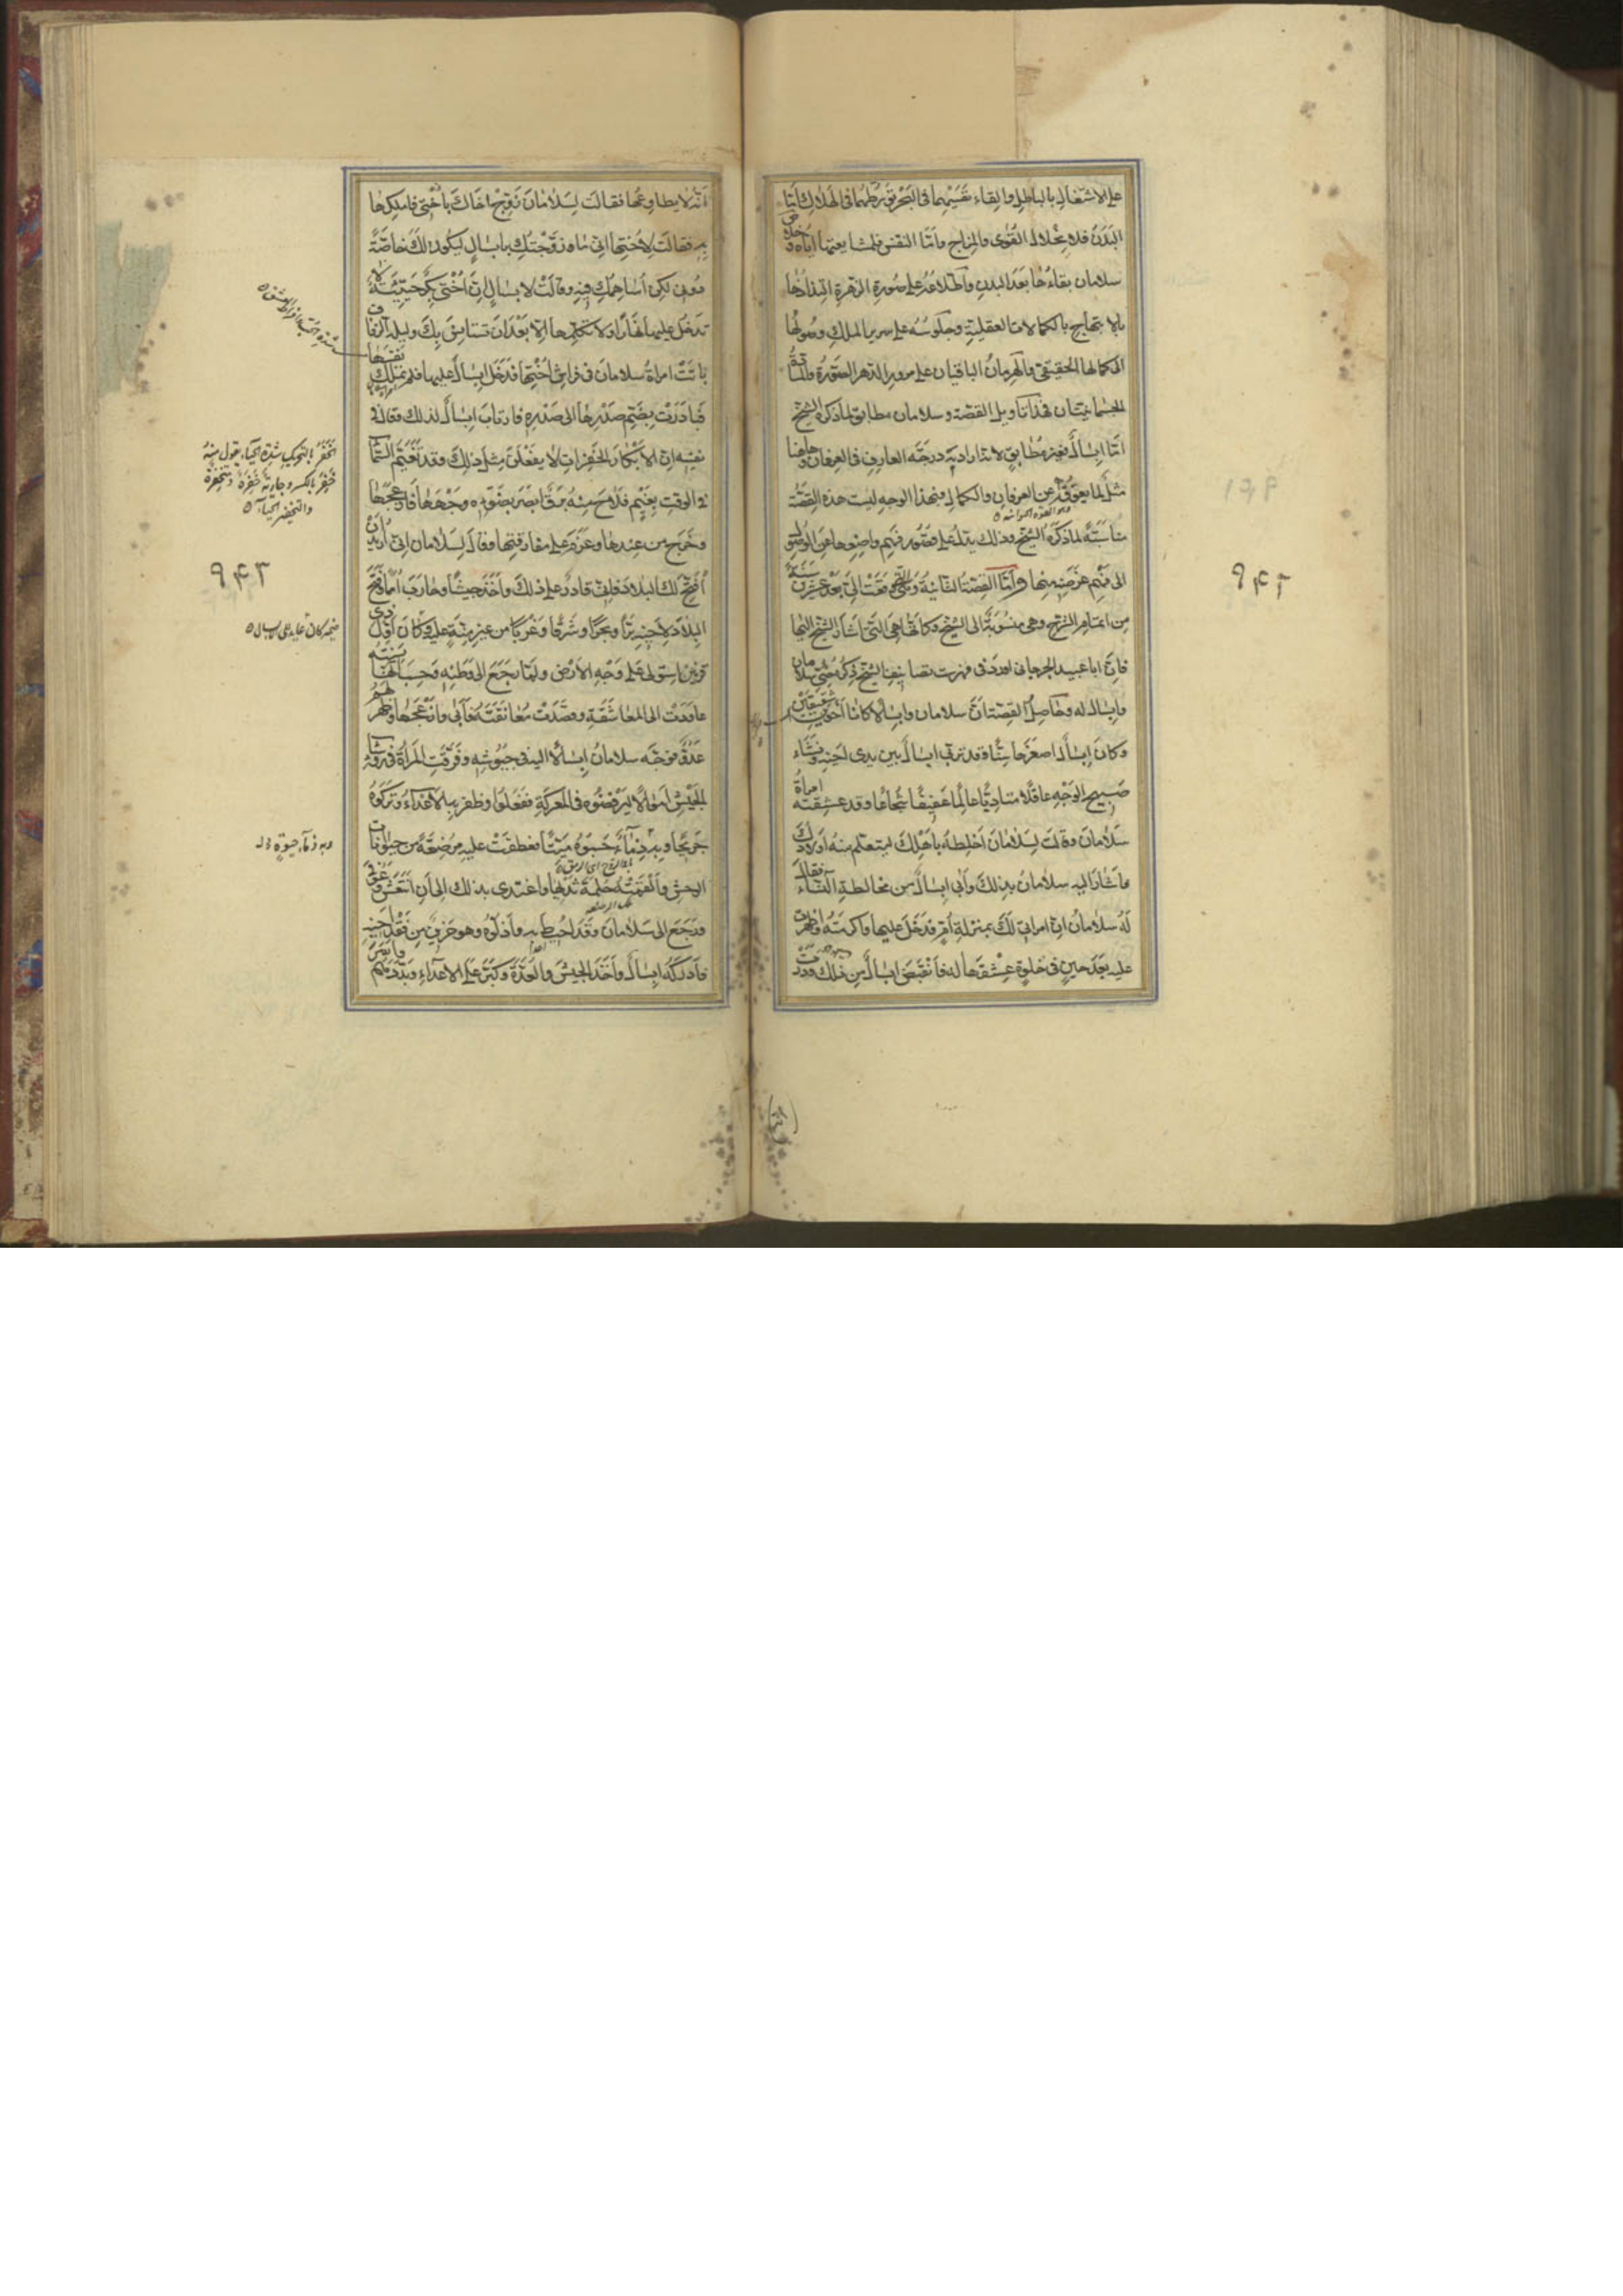 على الاشتغال بالباطل والقاء نفسيهما في البحر تورطهما في الهلاك اما
البدن فلانحلال القوى والمزاج واما النفس فلمشايعتها اياه وخلاص
سلامان بقاءها بعد البدن واطلاعه على صورة الزهرة التذاذها
بالابتهاج بالكمالات العقلية وجلوسه على سرير الملك وصولها
الى كمالها الحقيقي والهرمان الباقيان على مرور الدهر الصورة والمادة
الجسمانيتان فهذا تأويل القصة وسلامان مطابق لما ذكره الشيخ
اما ابسال فغير مطابق لانه اراد به درجة العارف في العرفان وههنا
مثل لما يعوقه عن العرفان والكمال فبهذا الوجه ليست هذه القصة
مناسبة لما ذكره الشيخ وذلك يدل على قصور فهم واضعها عن الوصول
الى فهم غرضه منها واما القصة الثانية وهي التي وقعت الي بعد عشرين سنة
من اتمام الشرح وهي منسوبة الى الشيخ وكانها هي التي اشار الشيخ اليها
فان ابا عبيد الجرجاني اورد في فهرست تصانيف الشيخ ذكر قصة سلامان
وابسال له وحاصل القصة ان سلامان وابسالا كانا اخوين شقيقين
وكان ابسال اصغرهما سنا وقد تربى ابسال بين يدي اخيه ونشاء
صبيح الوجه عاقلا متادبا عالما عفيفا شجاعا وقد عشقته امراة
سلامان وقالت لسلامان اخلطه باهلك ليتعلم منه اولادك
فاشار اليه سلامان بذلك وابى ابسال من مخالطة النساء فقال
له سلامان ان امراتي لك بمنزلة ام فدخل عليها واكرمته واظهرت
عليه بعد حين في خلوة عشقها له فانقبض ابسال من ذلك ودرت
٩۴٢
انه لا يطاوعها فقالت لسلامان زوج اخاك باختي فاملكها
به فقالت لاختها اني ما زوجتك بابسال ليكون لك خاصة
دوني لكن اساهمك فيه وقالت لابسال ان اختي بكر حيية لا
تدخل عليها نهارا ولا تكلمها الا بعد ان تستانس بك وليلة الزفاف
باتت امراة سلامان في فراش اختها فدخل ابسال عليها فلم تملك نفسها
فبادرت بضم صدرها الى صدره فارتاب ابسال لذلك وقال في
نفسه ان الابكار الخفرات لا يفعلن مثل ذلك وقد تغيم السماء
في الوقت بغيم فلاح منه برق ابصر بضوءه وجهها فازعجها
وخرج من عندها وعزم على مفارقتها وقال لسلامان اني اريد ان
افتح لك البلاد فاني قادر على ذلك واخذ جيشا وحارب امما وفتح
البلاد لاخيه برا وبحرا وشرقا وغربا من غير منة عليه وكان اول ذي
قرنين استولى على وجه الارض ولما رجع الى وطنه وحسب انها نسيته
عاودت الى المعاشقة وقصدت معانقته فابى وازعجها وظهر لهم
عدو فوجه سلامان ابسالا اليه في جيوشه وفرقت المراة في رؤساء
الجيش اموالا ليرفضوه في المعركة ففعلوا وظفر به الاعداء وتركوه
جريحا وبه ذماء حسبوه ميتا فعطفت عليه مرضعة من حيوانات
الوحش والقمته حلمة ثديها واغتذى بذلك الى ان انتعش وعوفي
ورجع الى سلامان وقد احيط به واذلوه وهو حزين من فقد اخيه
فادركه ابسال واخذ الجيش والعدة وكر على الاعداء وبددهم
الخفر بالتحريك شدة الحياء تقول منه
خفر بالكسر وجارية خفرة ومتخفرة
والتخفير الحياء
٩۴٣